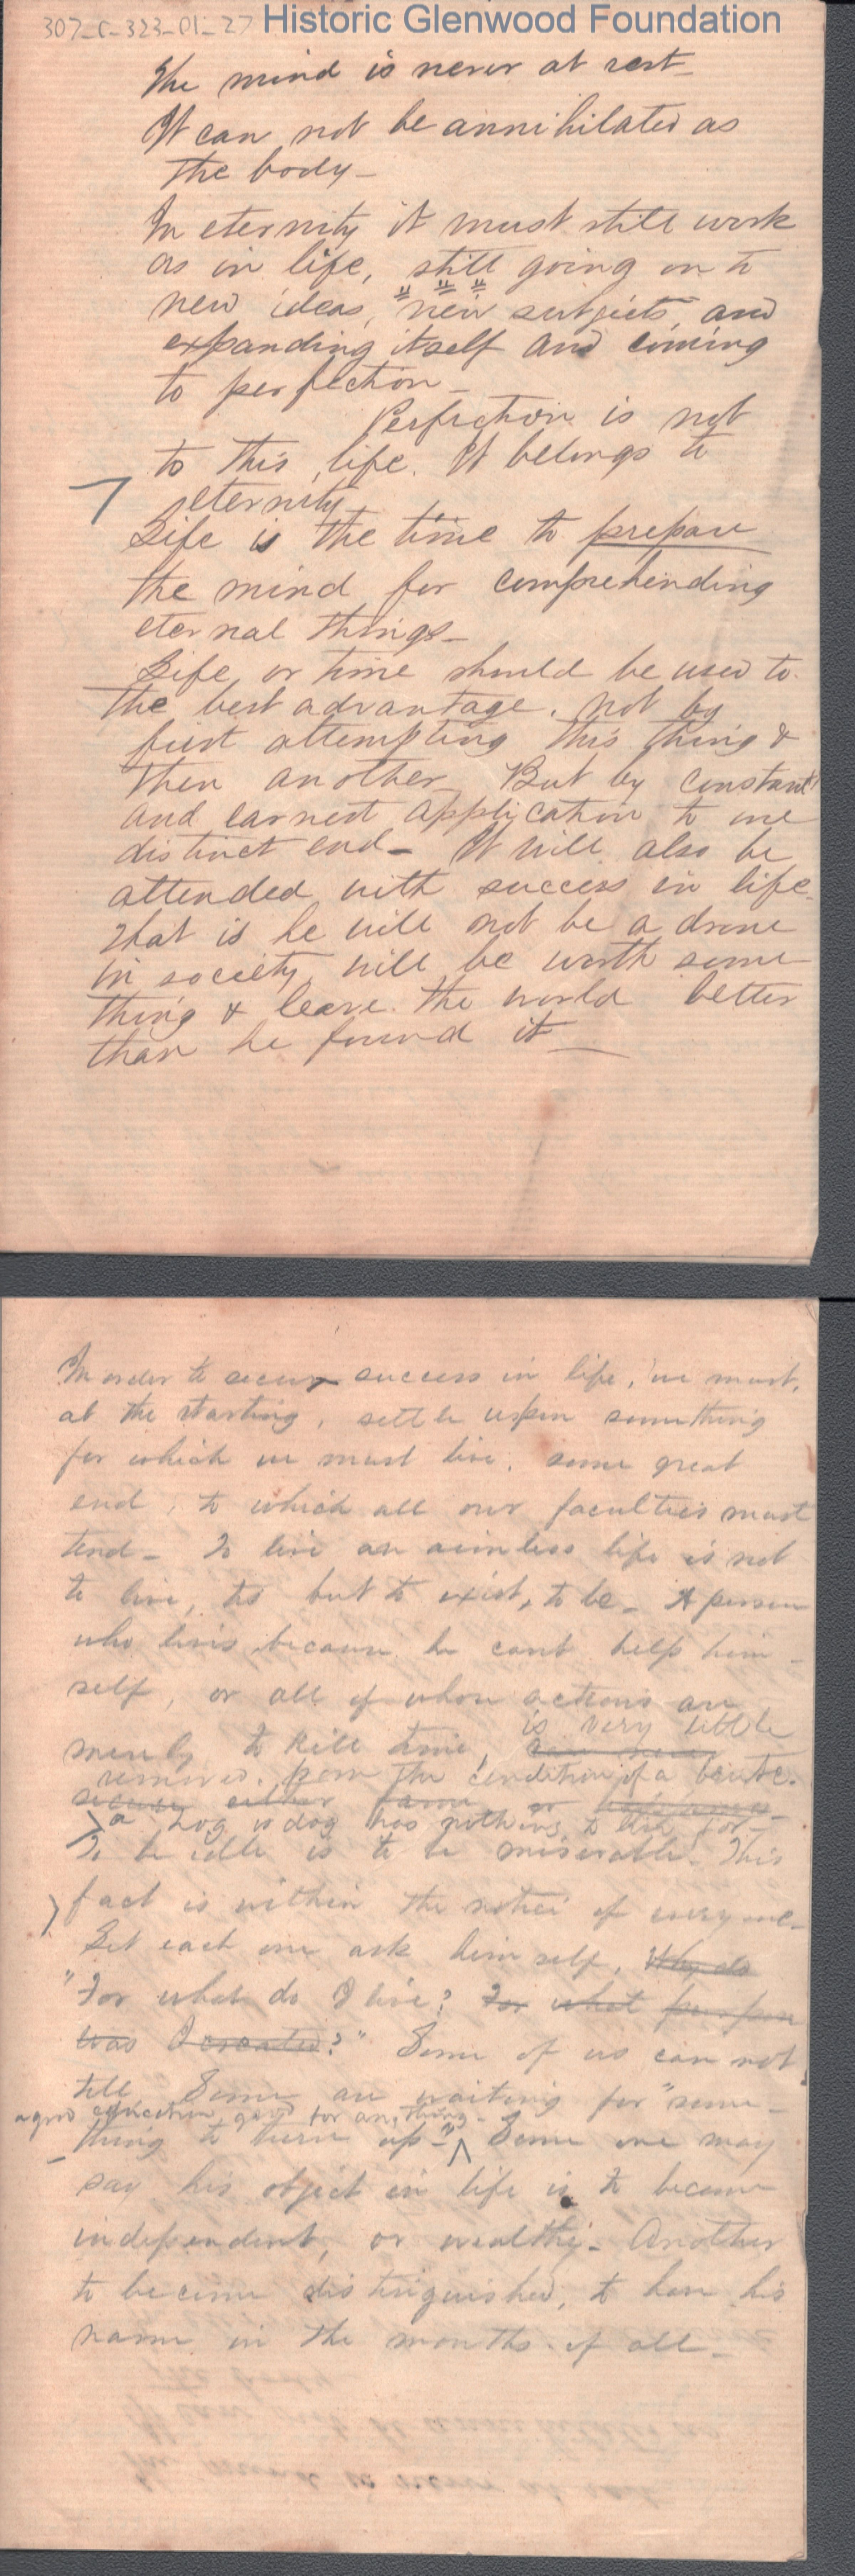 307-C-323-01-27 Historic Glenwood Foundation
The mind is never at rest-
It can not be annihilated as
the body-
In eternity it must still work
as in life, still going on to
new ideas, new subjects, and
expanding itself and coming
to perfection-
Perfection is not
to this life. It belongs to
eternity
Life is the time to prepare
the mind for comprehending
eternal things-
Life, or time should be used to
the best advantage. not by
first attempting this thing &
then another But by constant
and earnest application to one
distinct end- It will also be
attended with success in life.
That is he will not be a drone
in society, will be worth some
thing & leave the world better
than he found it
In order to secure success in life, we must,
at the starting, settle upon something
for which we must live, some great
end, to which all our faculties must
tend- To live an aimless life is not
to live, but to exist, to be- A person
who lives because he cant help him-
self, or all of whose actions are
is very little
merely to kill time,
removed from the condition of a brute.
secure either fame or
a hog or dog has nothing to live for-
To be idle is to be miserable- This
fact is within the notice of every one-
Let each one ask himself, Why do
"For what do I live? For what purpose
was I created?" Some of us can not
tell Some are waiting for "some-
a good education, good for anything-
thing to turn up-" Some one may
say his object in life is to become
independent, or wealthy- Another
to become distinguished, to have his
name in the mouths of all-